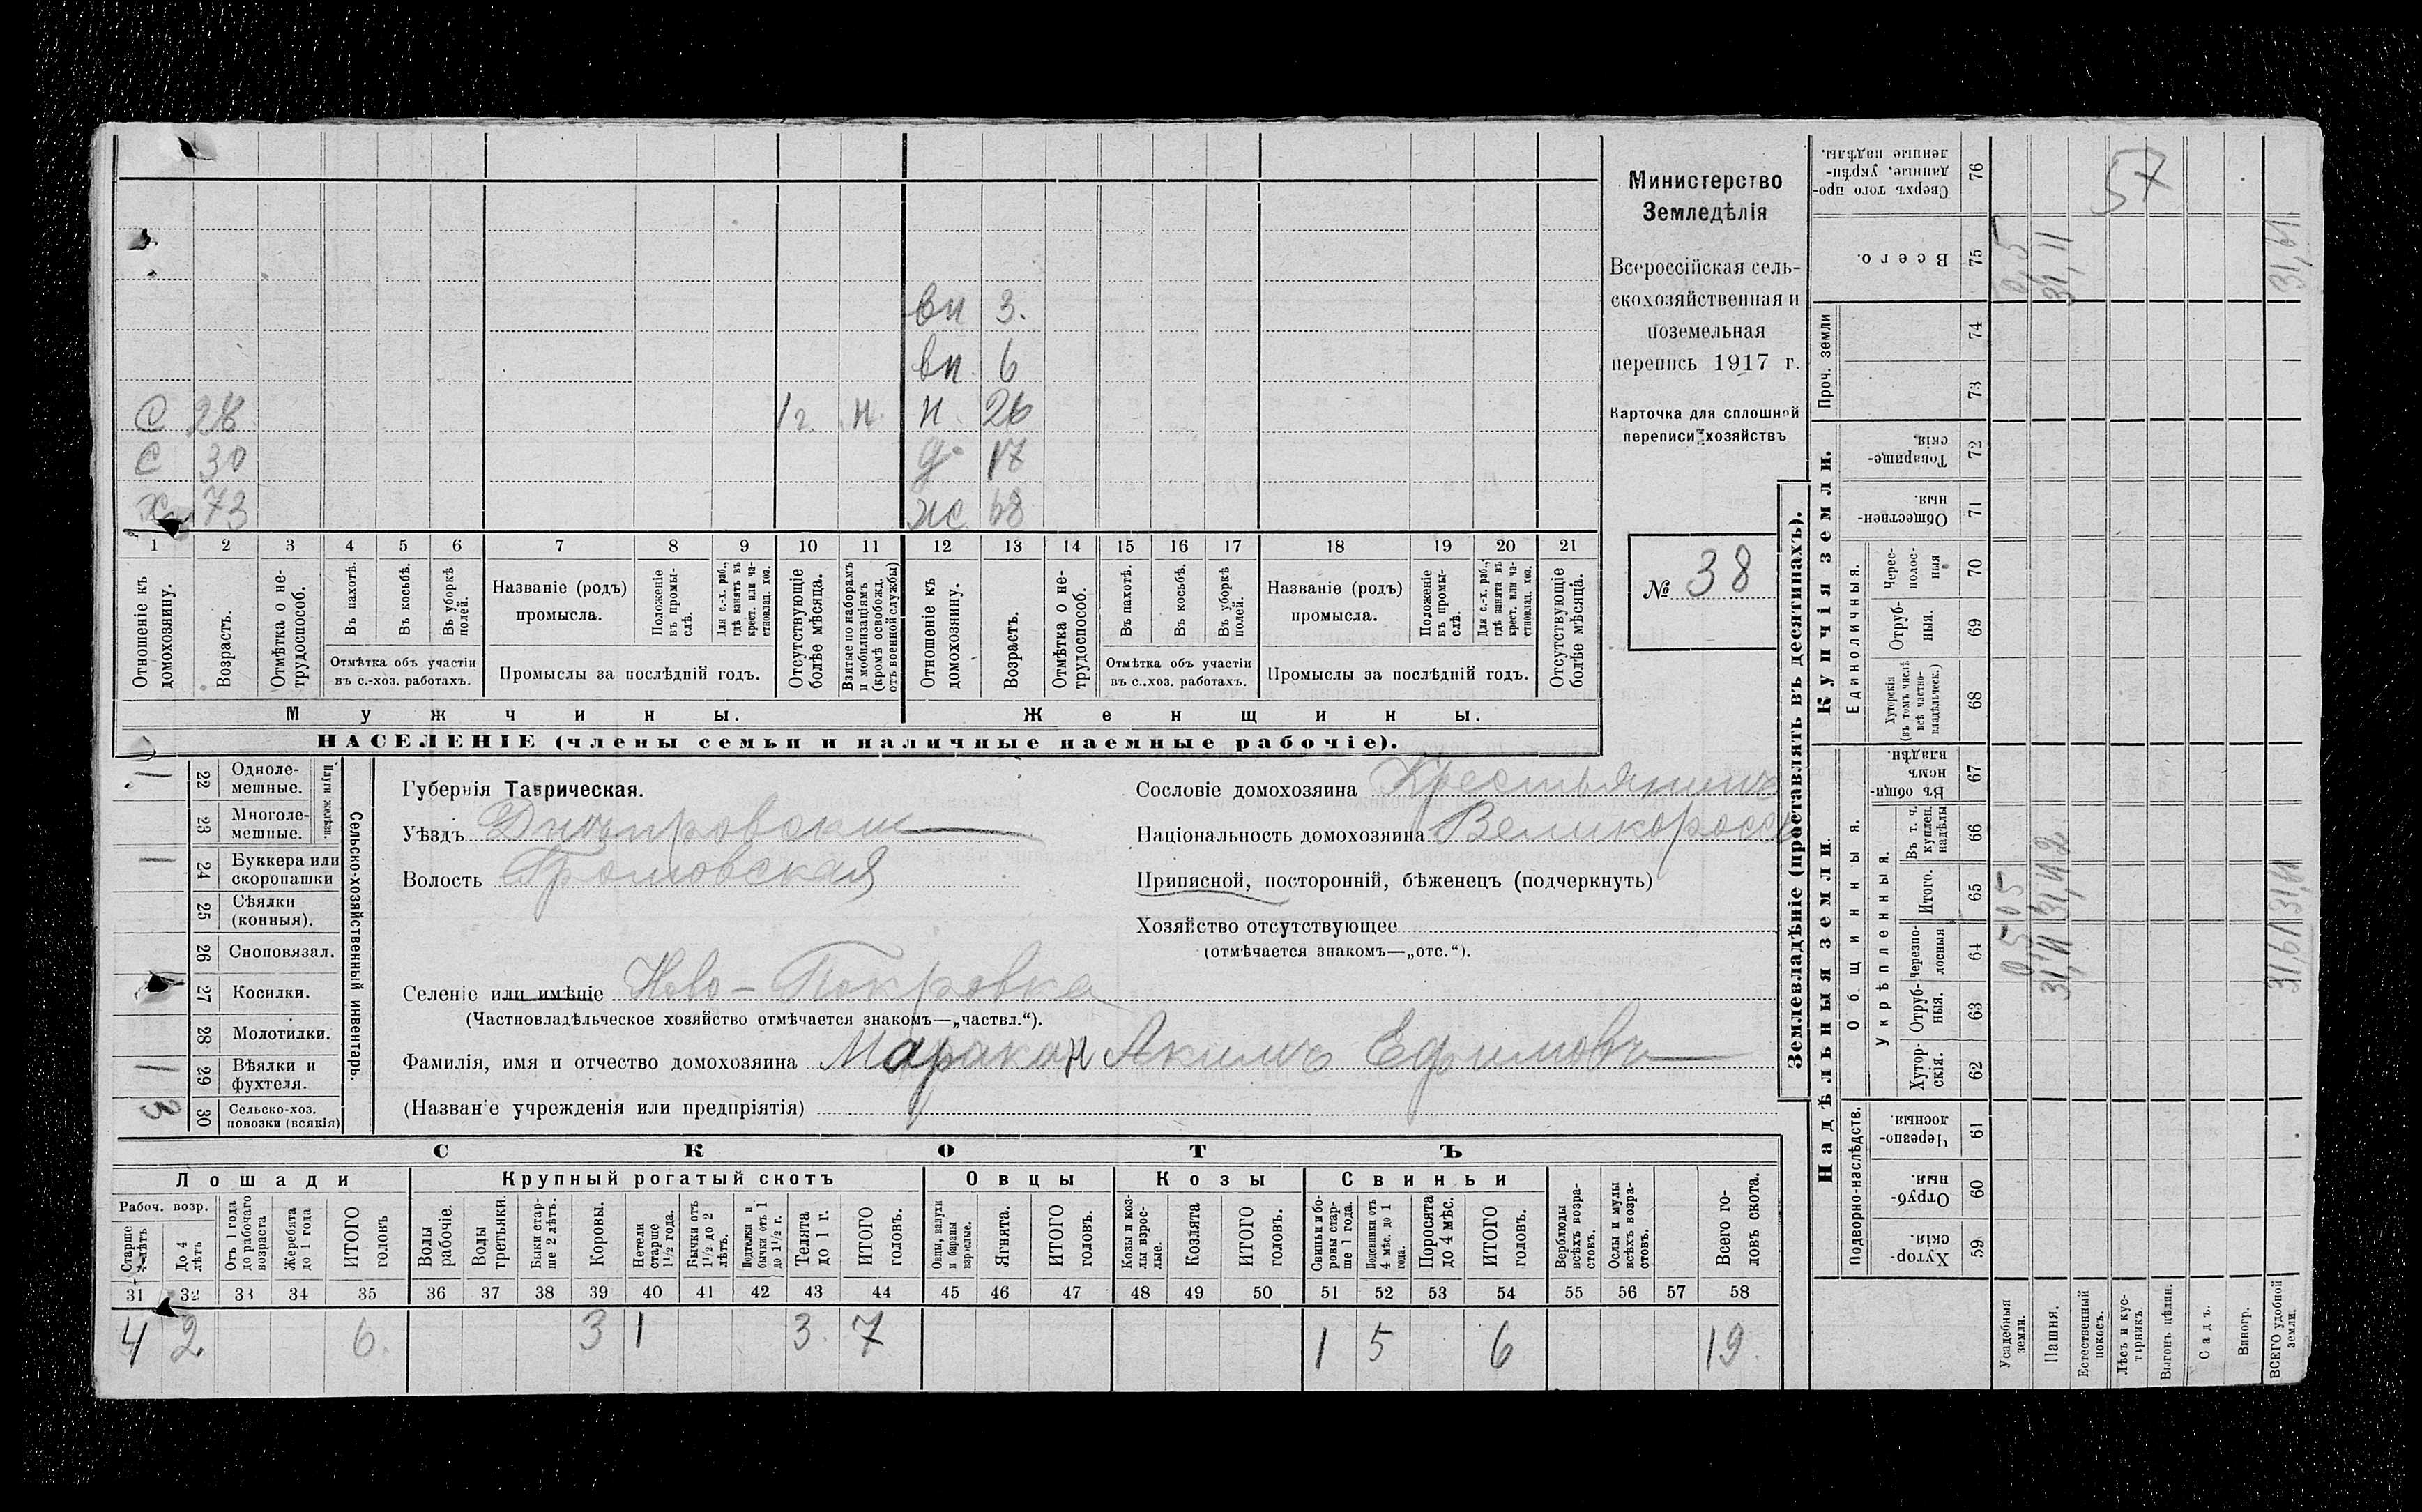 Министерство
Земледѣлія
Всероссійская сель-
скохозяйственная и
поземельная
перепись 1917 г.
Карточка для сплошной
переписи хозяйствъ
№ 38
вн 3.
вн. 6
С 28 1 г. н. н. 26
С 30 д. 17
Хз 73 ж 68
1 2 3 4 5 6 7 8 9 10 11 12 13 14 15 16 17 18 19 20 21
Отношеніе къ домохозяину.
Возрастъ.
Отмѣтка о не-трудоспособ.
Въ пахотѣ.
Въ косьбѣ.
Въ уборкѣ полей.
Отмѣтка объ участіи
въ с.-хоз. работахъ.
Названіе (родъ)
промысла.
Положеніе въ промы-слѣ.
Для с.-х. раб., гдѣ занятъ въ крест. или ча-стновлад. хоз.
Промыслы за послѣдній годъ.
Отсутствующіе болѣе мѣсяца.
Взятые по наборамъ и мобилизаціямъ (кромѣ освобожд. отъ военной службы)
Отношеніе къ домохозяину.
Возрастъ.
Отмѣтка о не-трудоспособ.
Въ пахотѣ.
Въ косьбѣ.
Въ уборкѣ полей.
Отмѣтка объ участіи
въ с..хоз. работахъ.
Названіе (родъ)
промысла.
Положеніе въ промы-слѣ.
Для с.-х. раб., гдѣ занята въ крест. или ча-стновлад. хоз.
Промыслы за послѣдній годъ.
Отсутствующіе болѣе мѣсяца.
Мужчины. Женщины.
НАСЕЛЕНІЕ (члены семьи и наличные наемные рабочіе).
Сельско-хозяйственный инвентарь.
Плуги желѣзн.
1 22 Одноле-мешные.
23 Многоле-мешные.
1 24 Буккера или скоропашки
25 Сѣялки (конныя).
26 Сноповязал.
27 Косилки.
28 Молотилки.
1 29 Вѣялки и фухтеля.
3 30 Сельско-хоз. повозки (всякія)
Губернія Таврическая.
Уѣздъ Днѣпровскій
Волость Громовская
Селеніе или имѣніе Ново-Покровка
(Частновладѣльческое хозяйство отмѣчается знакомъ—„частвл.“).
Фамилія, имя и отчество домохозяина Маракан Акимъ Ефимовъ
(Названіе учрежденія или предпріятія)
Сословіе домохозяина Крестьянинъ
Національность домохозяина Великороссъ
Приписной, посторонній, бѣженецъ (подчеркнуть)
Хозяйство отсутствующее
(отмѣчается знакомъ—„отс.“).
СКОТЪ
Лошади Крупный рогатый скотъ Овцы Козы Свиньи
Рабоч. возр.
Старше 4 лѣтъ
До 4 лѣтъ
Отъ 1 года до рабочаго возраста
Жеребята до 1 года
ИТОГО головъ
Волы рабочіе.
Волы третьяки.
Быки стар-ше 2 лѣтъ.
Коровы.
Нетели старше 1½ года.
Бычки отъ 1½ до 2 лѣтъ.
Подтелки и бычки отъ 1 до 1½ г.
Телята до 1 г.
ИТОГО головъ.
Овцы, валухи и бараны взрослые.
Ягнята.
ИТОГО головъ.
Козы и коз-лы взрос-лые.
Козлята
ИТОГО головъ.
Свиньи и бо-ровы стар-ше 1 года.
Подсвинки отъ 4 мѣс. до 1 года.
Поросята до 4 мѣс.
ИТОГО головъ.
Верблюды всѣхъ возра-стовъ.
Ослы и мулы всѣхъ возра-стовъ.
Всего го-ловъ скота.
31 32 33 34 35 36 37 38 39 40 41 42 43 44 45 46 47 48 49 50 51 52 53 54 55 56 57 58
4 2 6. 3 1 3. 7 1 5 6 19.
Землевладѣніе (проставлять въ десятинахъ).
Надѣльныя земли. Купчія земли.
Подворно-наслѣдств.
Общинныя.
Укрѣпленныя.
Единоличныя.
Проч. земли
59 Хутор-скія.
60 Отруб-ныя.
61 Черезпо-лосныя
62 Хутор-скія.
63 Отруб-ныя.
64 Черезпо-лосныя
65 Итого.
66 Въ т. ч. куплен. надѣлы
67 Въ общин-номъ владѣн.
68 Хуторскія (въ томъ числѣ всѣ частно-владѣльческ.)
69 Отруб-ныя.
70 Черес-полос-ныя
71 Обществен-ныя.
72 Товарище-скія.
73
74
75 Всего.
76 Сверхъ того про-данные, укрѣп-ленные надѣлы.
Усадебныя земли. 0,5 05 0,5
Пашня. 31,11 31,11 31,11
Естественный покосъ.
Лѣсъ и кус-тарникъ.
Выгонъ цѣлин.
Садъ.
Виногр.
ВСЕГО удобной земли. 31,61 31,61
57